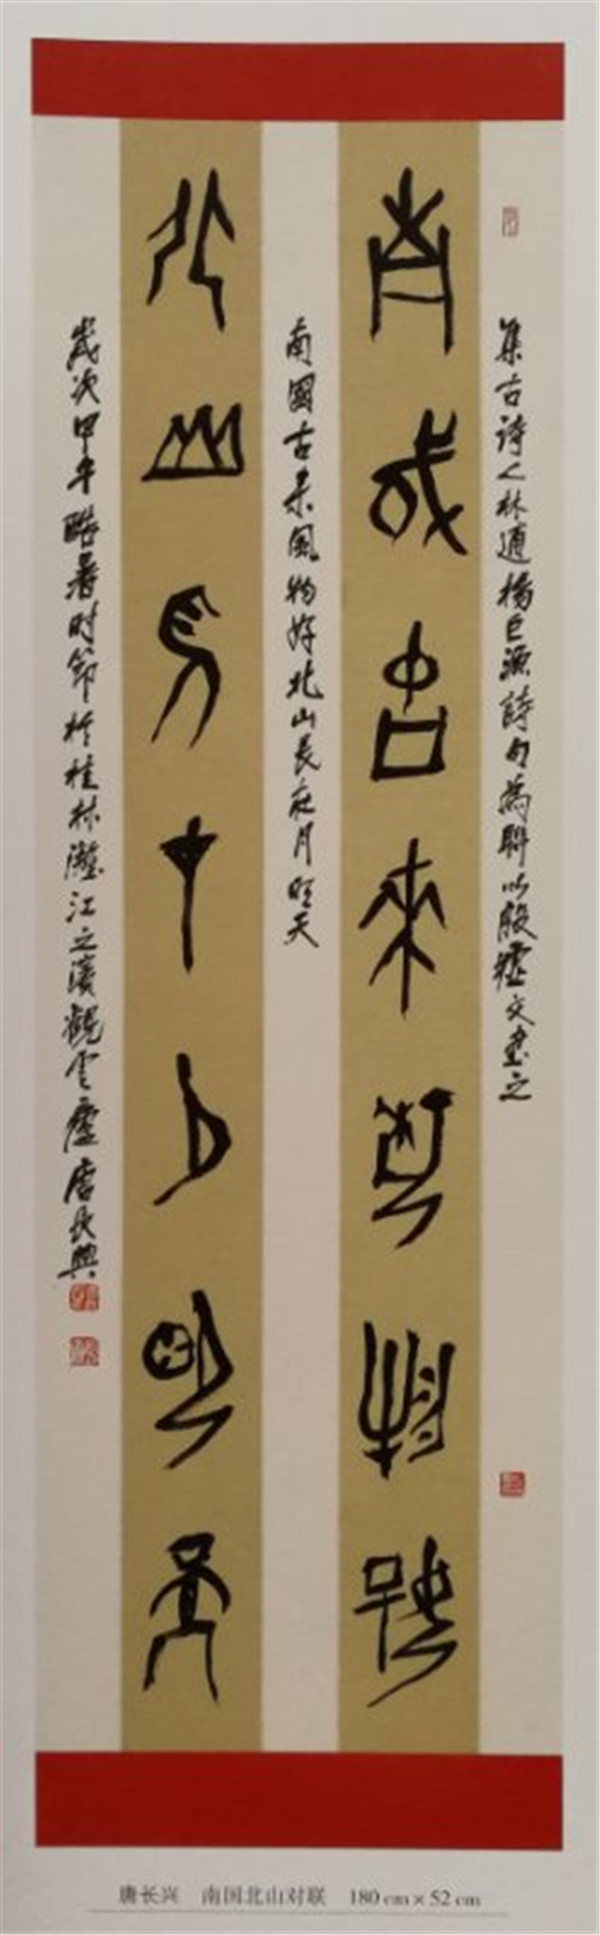 集古詩人林逋楊巨源詩句為聯以殷墟文書之
南國古來風物好
南國古来風物好北山長在月明天
北山長在月明天
歲次甲午酷暑時節於桂林灕江之濱觀雲廬唐長興
唐长兴 南国北山对联 180 cm × 52 cm